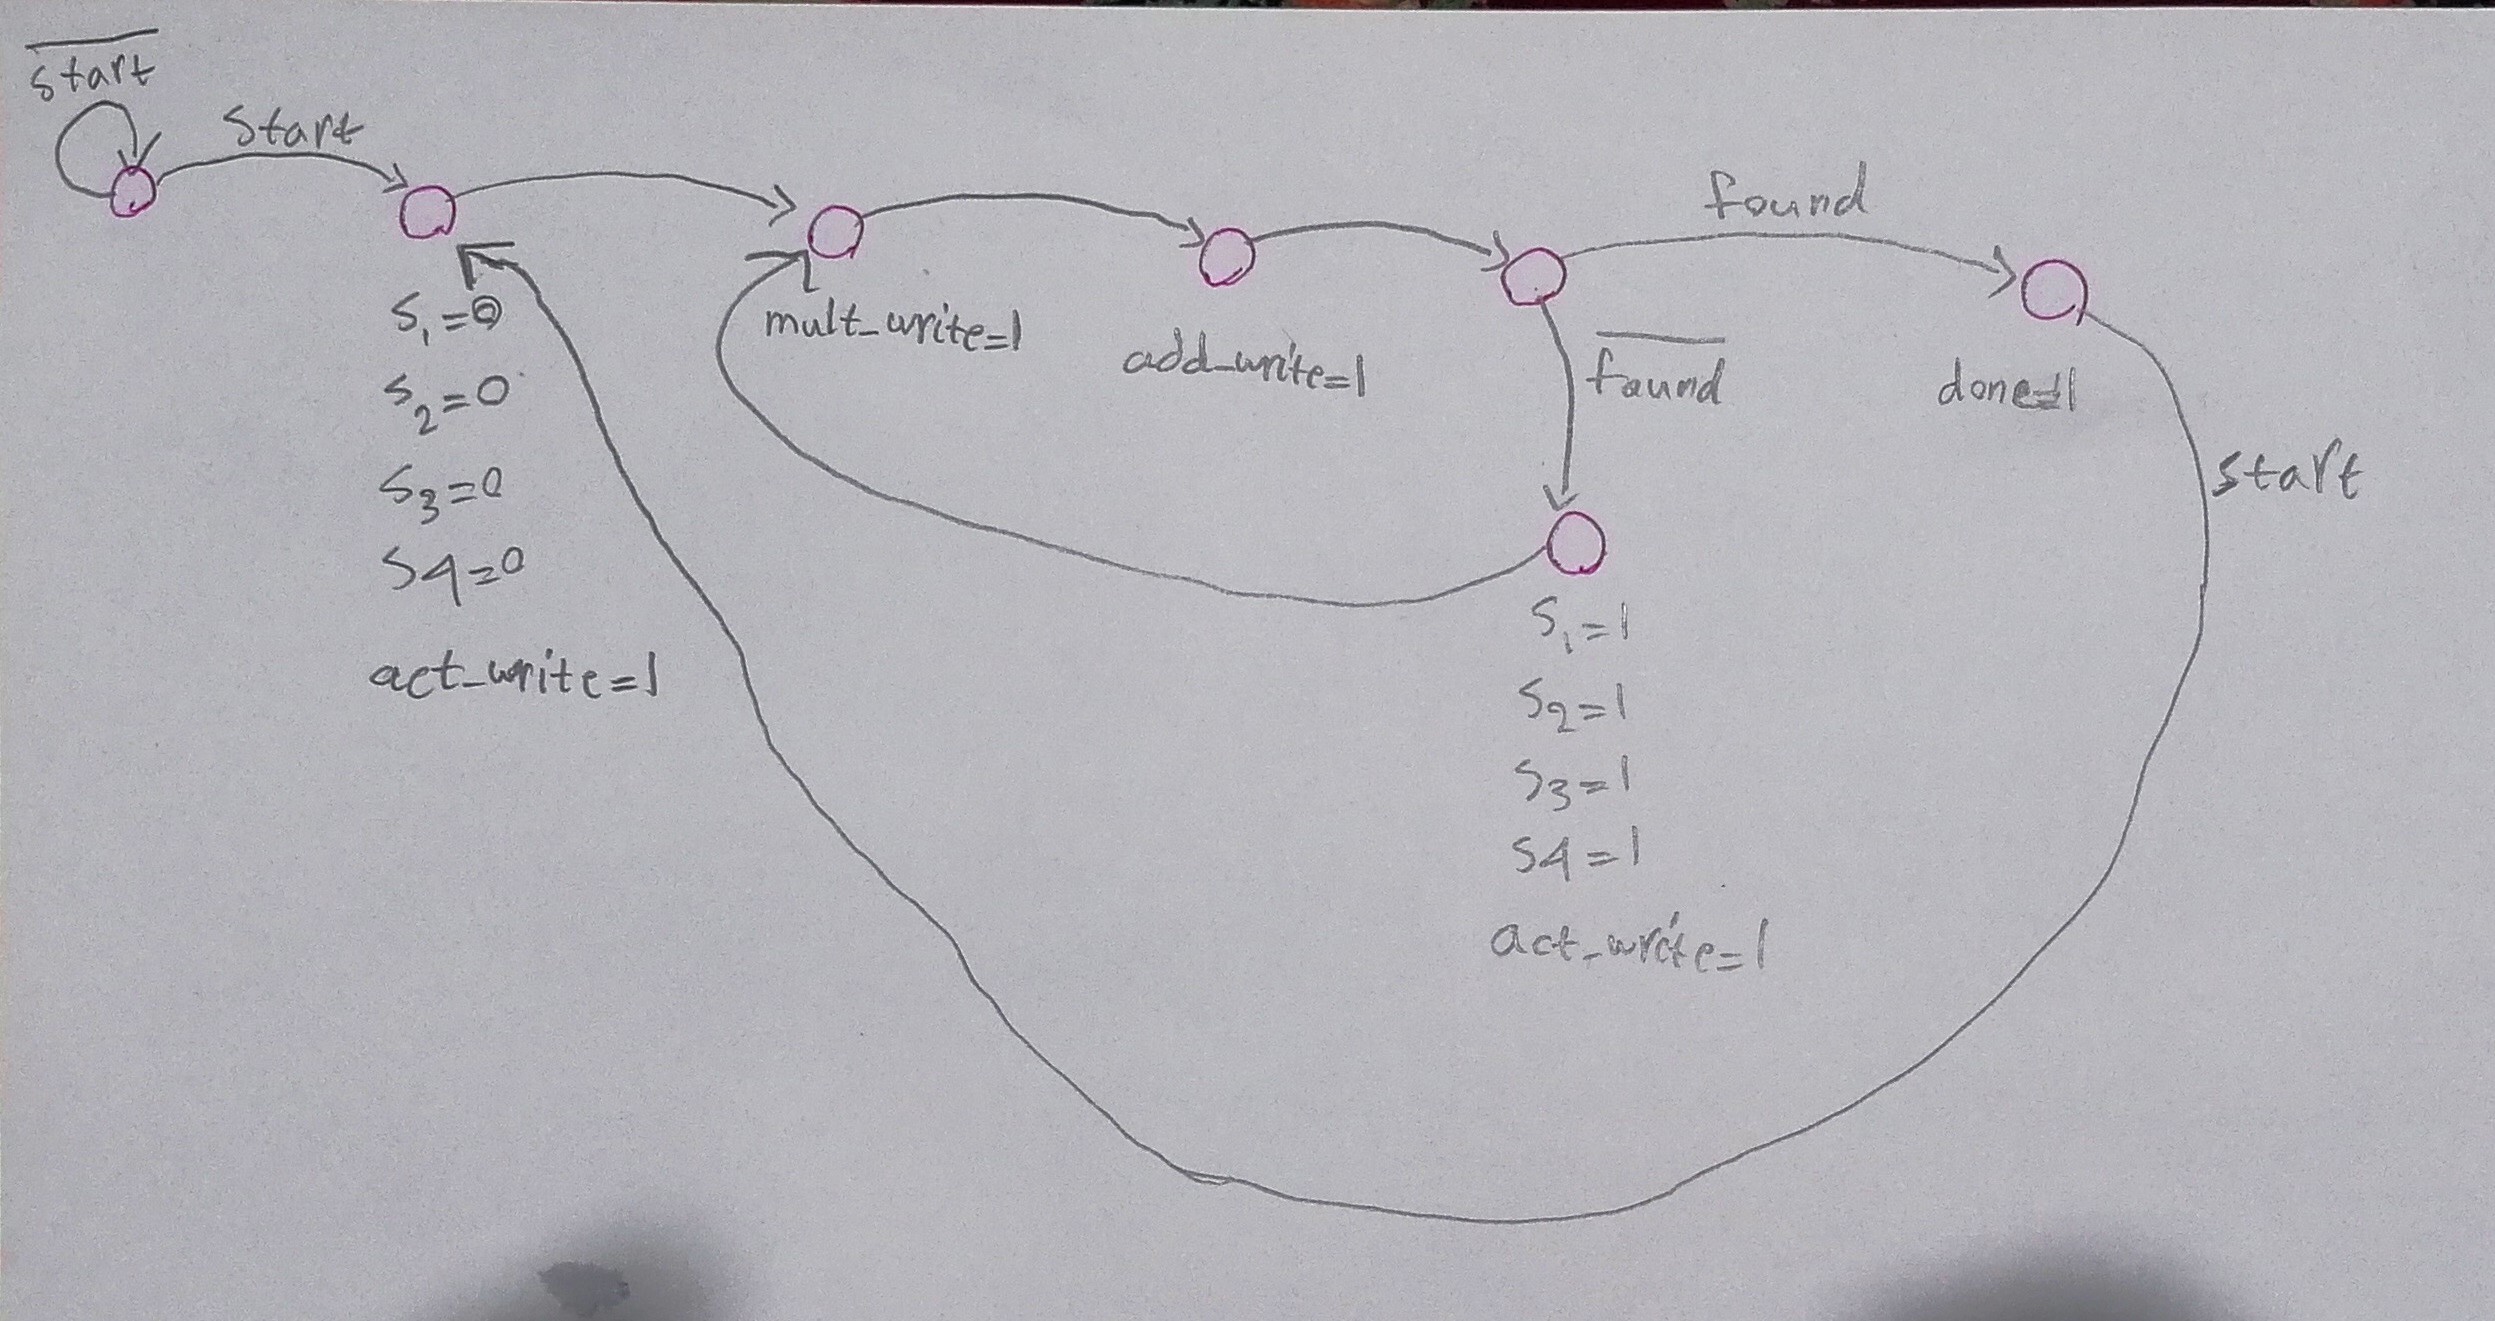 s̅t̅a̅r̅t̅
start
S₁=0
S₂=0
S₃=0
S4=0
act_write=1
mult_write=1
add_write=1
found
f̅o̅u̅n̅d̅
done=1
start
S₁=1
S₂=1
S₃=1
S4=1
act_write=1